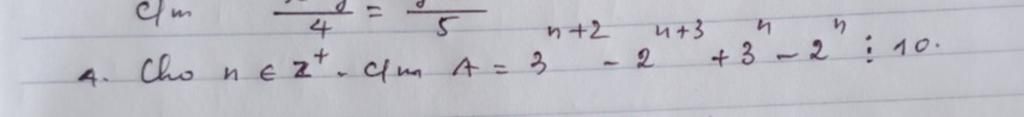 c/m /4 = /5
4. Cho n ∈ Z⁺. c/m A = 3ⁿ⁺² - 2ⁿ⁺³ + 3ⁿ - 2ⁿ ⋮ 10.